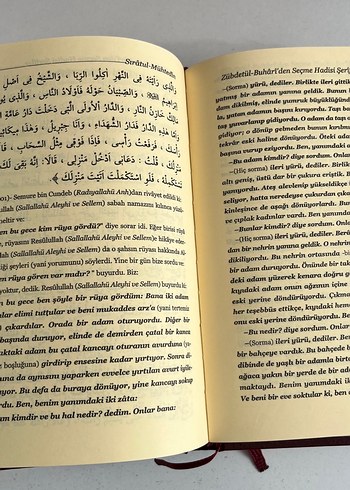 Sırâtul-Mühtedîn
وَالَّذِي رَأَيْتَهُ فِي النَّهْرِ آكِلُوا الرِّبَا ، وَالشَّيْخُ فِي أَصْلِ
إِبْرَاهِيمُ وَالصِّبْيَانُ حَوْلَهُ فَأَوْلَادُ النَّاسِ ، وَالَّذِي يُوقِدُ
مَالِكٌ خَازِنُ النَّارِ ، وَالدَّارُ الْأُولَى الَّتِي دَخَلْتَ دَارُ عَامَّةِ
وَأَمَّا هَذِهِ الدَّارُ فَدَارُ الشُّهَدَاءِ ، وَأَنَا جِبْرِيلُ ، وَهَذَا مِيكَائِيلُ
رَأْسَكَ ، فَرَفَعْتُ رَأْسِي ، فَإِذَا فَوْقِي مِثْلُ السَّحَابِ ، قَالَا
مَنْزِلُكَ ، قُلْتُ : دَعَانِي أَدْخُلْ مَنْزِلِي ، قَالَا : إِنَّهُ بَقِيَ لَكَ
تَسْتَكْمِلْهُ ، فَلَوِ اسْتَكْمَلْتَ أَتَيْتَ مَنْزِلَكَ
- Semure bin Cundeb (Radıyallahü Anh)'dan rivâyet edildi ki
(Sallallahü Aleyhi ve Sellem) sabah namazını kılınca yüzü
eltir ve:
bu gece kim rüya gördü?" diye sorar idi. Eğer birisi rüya
rüyasını Resûlullah (Sallallahü Aleyhi ve Sellem)'e hikâye eder
sûlullah (Sallallahü Aleyhi ve Sellem) da o şahsın rüyası hakkında
ği şeyleri (yani yorumunu) söylerdi. Yine bir gün bize sordu ve
rüya gören var mıdır?" buyurdu. Biz:
yoktur, dedik. Resûlullah (Sallallahü Aleyhi ve Sellem) buyurdu ki
n bu gece ben şöyle bir rüya gördüm: Bana iki adam
amlar elimi tuttular ve beni mukaddes arz'a (yani temiz
) çıkardılar. Orada bir adam oturuyordu. Diğer bir
başında duruyor, elinde de demirden çatal bir kanca
ktaki adam bu çatal kancayı oturanın avurduna (yani
boşluğuna) girdirip ensesine kadar yırtıyor. Sonra di
na da aynısını yaparken evvelce yırtılan avurt iyileşi
u. Bu defa da buraya dönüyor, yine kancayı sokup
rdu. Ben, benim yanımdaki iki zâta:
m kimdir ve bu hal nedir? dedim. Onlar bana:
Zübdetül-Buhârî'den Seçme Hadîsi Şerîf
—(Sorma) ileri yürü, dediler. Birlikte ileri gittik
yatmış bir adamın yanına geldik. Bunun
dikilmiş, elinde yumruk büyüklüğünde
ta, yatan adamın başını kırıyordu. Taşı
taş yuvarlanıp gidiyordu. O adam da taşı
gidiyor; o dönüp gelmeden bunun kırılmış
eski haline dönüyordu. O adam tekrar
başına vurup eziyordu. Ben, yanımdaki
—Bu adam kimdir? diye sordum. Onlar
—(Hiç sorma) ileri yürü, dediler. Beraber
altı geniş, üstü dar bir çukura eriştik.
yanıyordu. Ateş alevlenip yükseldikçe
seliyor, hatta neredeyse çukurdan çıkacak
kinezinse de aşağı dönüyorlardı. Bunun
ve çıplak kadınlar vardı. Ben, yanımdaki
—Bunlar kimdir? diye sordum. Onlar
—(Hiç sorma) ileri yürü, dediler. Beraber
dan bir nehrin yanına geldik. O nehrin
dikiliyordu. Bu nehrin ortasında
bir adam duruyordu. Önünde bir takım
deki adam yüzerek kenara doğru
kıyıdaki adam onun ağzının içine
eski yerine döndürüyordu. Çıkmak
her teşebbüs ettikçe, kıyıdaki hemen
onu eski yerine döndürüyordu. Ben
—Bu nedir? diye sordum. Onlar
—(Sorma) ileri yürü, dediler. Ben
bir bahçeye vardık. Bu bahçede
dibinde de yaşlı bir adamla birtakım
ağaca yakın bir yerde de bir adam
maktaydı. Benim yanımdaki iki
Ve beni bir eve soktular ki, ben